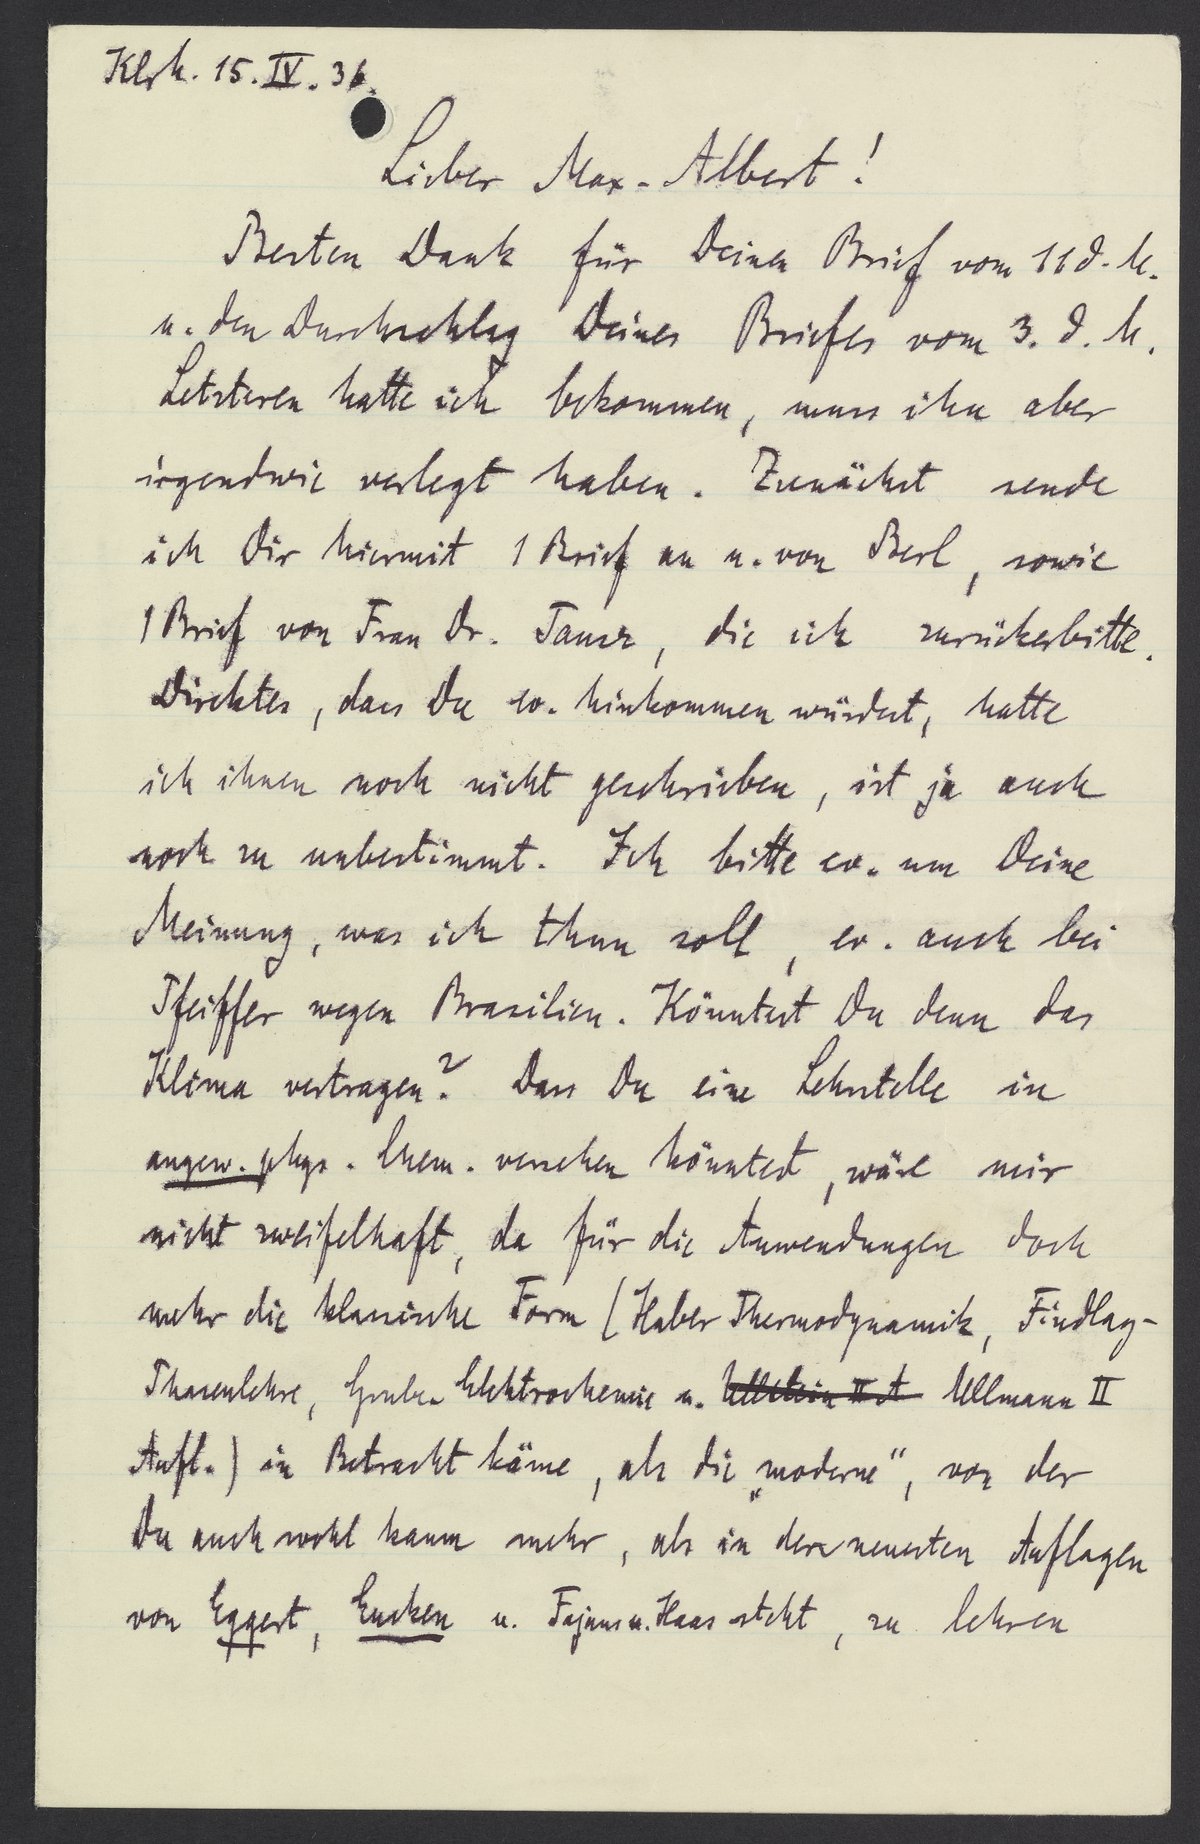 Klrh. 15. IV. 36.
Lieber Max-Albert!
Besten Dank für Deinen Brief vom 11 d. M.
u. den Durchschlag Deines Briefes vom 3. d. M.
Letzteren hatte ich bekommen, muss ihn aber
irgendwie verlegt haben. Zunächst sende
ich Dir hiermit 1 Brief an u. von Berl, sowie
1 Brief von Frau Dr. Tausz, die ich zurückerbitte.
Direktes, dass Du ev. hinkommen würdest, hatte
ich ihnen noch nicht geschrieben, ist ja auch
noch zu unbestimmt. Ich bitte ev. um Deine
Meinung, was ich thun soll, ev. auch bei
Pfeiffer wegen Brasilien. Könntest Du denn das
Klima vertragen? Dass Du eine Lehrstelle in
angew. phys. Chem. versehen könntest, wäre mir
nicht zweifelhaft, da für die Anwendungen doch
mehr die klassische Form (Haber Thermodynamik, Findlay-
Phasenlehre, Grube Elektrochemie u. Ullmann II
Aufl.) in Betracht käme, als die „moderne“, von der
Du auch wohl kaum mehr, als in den neuesten Auflagen
von Eggert, Eucken u. Fajans u. Haas steht, zu lehren